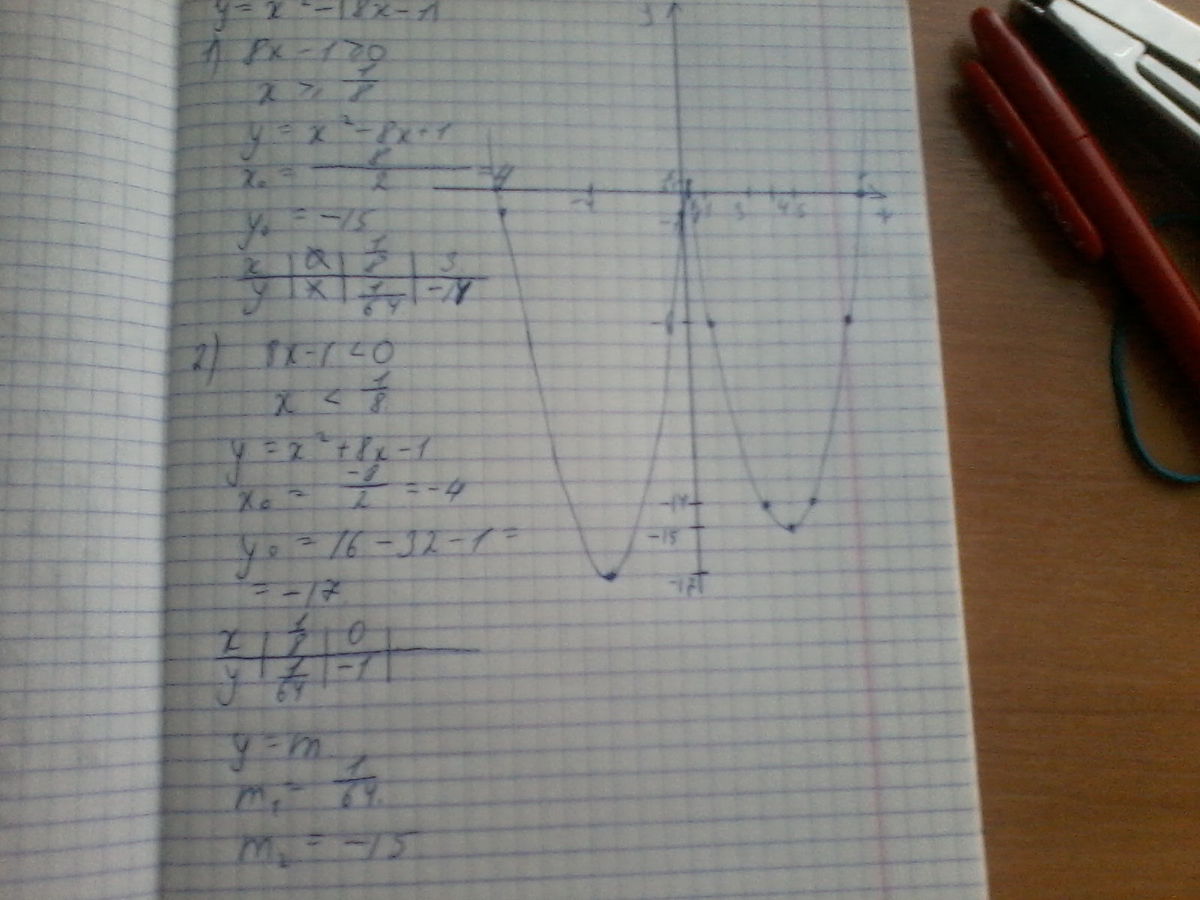 y = x² - |8x - 1|
1) 8x - 1 ≥ 0
x ≥ 1/8
y = x² - 8x + 1
x₀ = 8/2 = 4
y₀ = -15
x | 0 | 1/8 | 3
y | x | 1/64 | -14
2) 8x - 1 < 0
x < 1/8
y = x² + 8x - 1
x₀ = -8/2 = -4
y₀ = 16 - 32 - 1 =
= -17
x | 1/8 | 0 |
y | 1/64 | -1 |
y = m
m₁ = 1/64
m₂ = -15
-4
3
4
5
-14
-15
-17